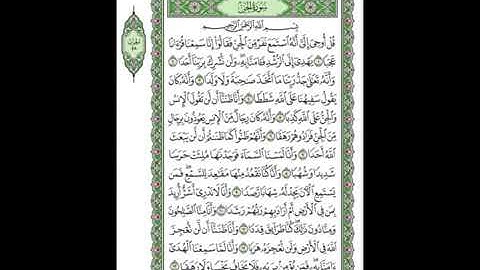 سورة الجن
بسم الله الرحمن الرحيم
قل أوحي إلي أنه استمع نفر من الجن فقالوا إنا سمعنا قرءانا
عجبا ١ يهدي إلى الرشد فئامنا به ولن نشرك بربنا أحدا ٢
وأنه تعلى جد ربنا ما اتخذ صحبة ولا ولدا ٣ وأنه كان
يقول سفيهنا على الله شططا ٤ وأنا ظننا أن لن تقول الإنس
والجن على الله كذبا ٥ وأنه كان رجال من الإنس يعوذون برجال
من الجن فزادوهم رهقا ٦ وأنهم ظنوا كما ظننتم أن لن يبعث
الله أحدا ٧ وأنا لمسنا السماء فوجدنها ملئت حرسا
شديدا وشهبا ٨ وأنا كنا نقعد منها مقعد للسمع فمن
يستمع الآن يجد له شهابا رصدا ٩ وأنا لا ندري أشر أريد
بمن في الأرض أم أراد بهم ربهم رشدا ١٠ وأنا منا الصلحون
ومنا دون ذلك كنا طرائق قددا ١١ وأنا ظننا أن لن نعجز
الله في الأرض ولن نعجزه هربا ١٢ وأنا لما سمعنا الهدى
ءامنا به فمن يؤمن بربه فلا يخاف بخسا ولا رهقا ١٣